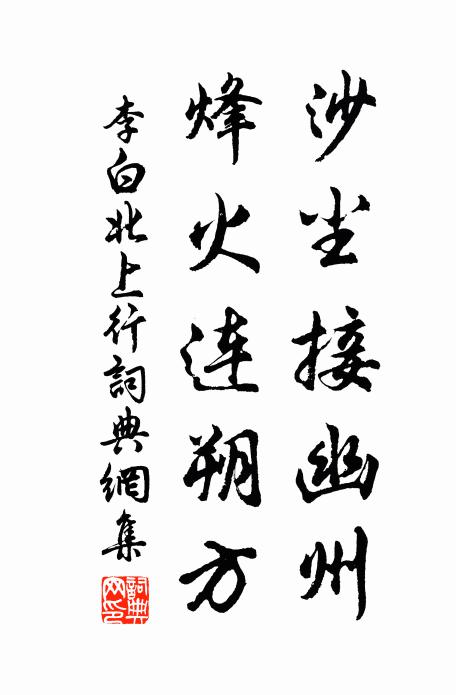 沙尘接幽州
烽火连朔方
李白北上行詞典網集
詞典网印